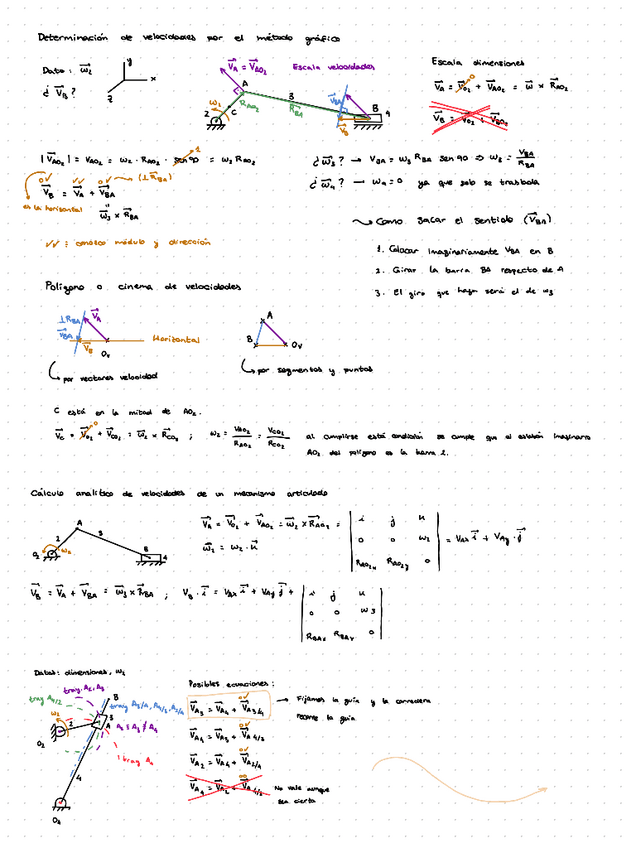 Determinación de velocidades por el método gráfico
Dato: ω₂
¿ V_B ?
y
x
z
V_A = V_AO₂
Escala velocidades
A
3
R_AO₂
R_BA
ω₂
2
C
O₂
V_BA
B
4
V_B
Escala dimensiones
V_A = V_O₂ + V_AO₂ = ω × R_AO₂
0
V_B = V_O₂ + V_BO₂
|V_AO₂| = V_AO₂ = ω₂ · R_AO₂ · sen 90 = ω₂ R_AO₂
1
0✓ ✓✓ 0✓ → (⊥ R_BA)
V_B = V_A + V_BA
es la horizontal
ω₃ × R_BA
✓✓ : conozco módulo y dirección
¿ ω₃ ? → V_BA = ω₃ R_BA sen 90 ⇒ ω₃ = V_BA / R_BA
¿ ω₄ ? → ω₄ = 0 ya que solo se traslada
Como sacar el sentido (V_BA)
1. Colocar imaginariamente V_BA en B
2. Girar la barra BA respecto de A
3. El giro que haga será el de ω₃
Polígono o cinema de velocidades
⊥ R_BA
V_A
V_BA
V_B
O_v
Horizontal
por vectores velocidad
A
B
O_v
por segmentos y puntos
C está en la mitad de AO₂.
V_C = V_O₂ + V_CO₂ = ω₂ × R_CO₂ ; ω₂ = V_AO₂ / R_AO₂ = V_CO₂ / R_CO₂
0
al cumplirse está condición se cumple que el eslabón imaginario
AO₂ del polígono es la barra 2.
Cálculo analítico de velocidades de un mecanismo articulado
A
2
3
O₂
ω₂
B
4
V_A = V_O₂ + V_AO₂ = ω₂ × R_AO₂ =
i j k
0 0 ω₂
R_AO₂x R_AO₂y 0
= V_Ax i + V_Ay j
ω₂ = ω₂ · k
V_B = V_A + V_BA = ω₃ × R_BA ; V_B · i = V_Ax i + V_Ay j +
i j k
0 0 ω3
R_BAx R_BAy 0
Datos: dimensiones, ω₂
tray A₂, A₃
tray A₄/₂
B
tray A₃/₄, A₄/₃, A₂/₄
ω₂
2
3
A
O₂
⊥ tray A₄
4
O₂
Posibles ecuaciones:
0✓
V_A₃ = V_A₄ + V_A₃/₄
→ Fijamos la guía y la corredera
recorre la guía
0✓
V_A₄ = V_A₃ + V_A₄/₃
0✓
V_A₂ = V_A₄ + V_A₂/₄
V_A₄ = V_A₂ + V_A₄/₂
No vale aunque
sea cierta